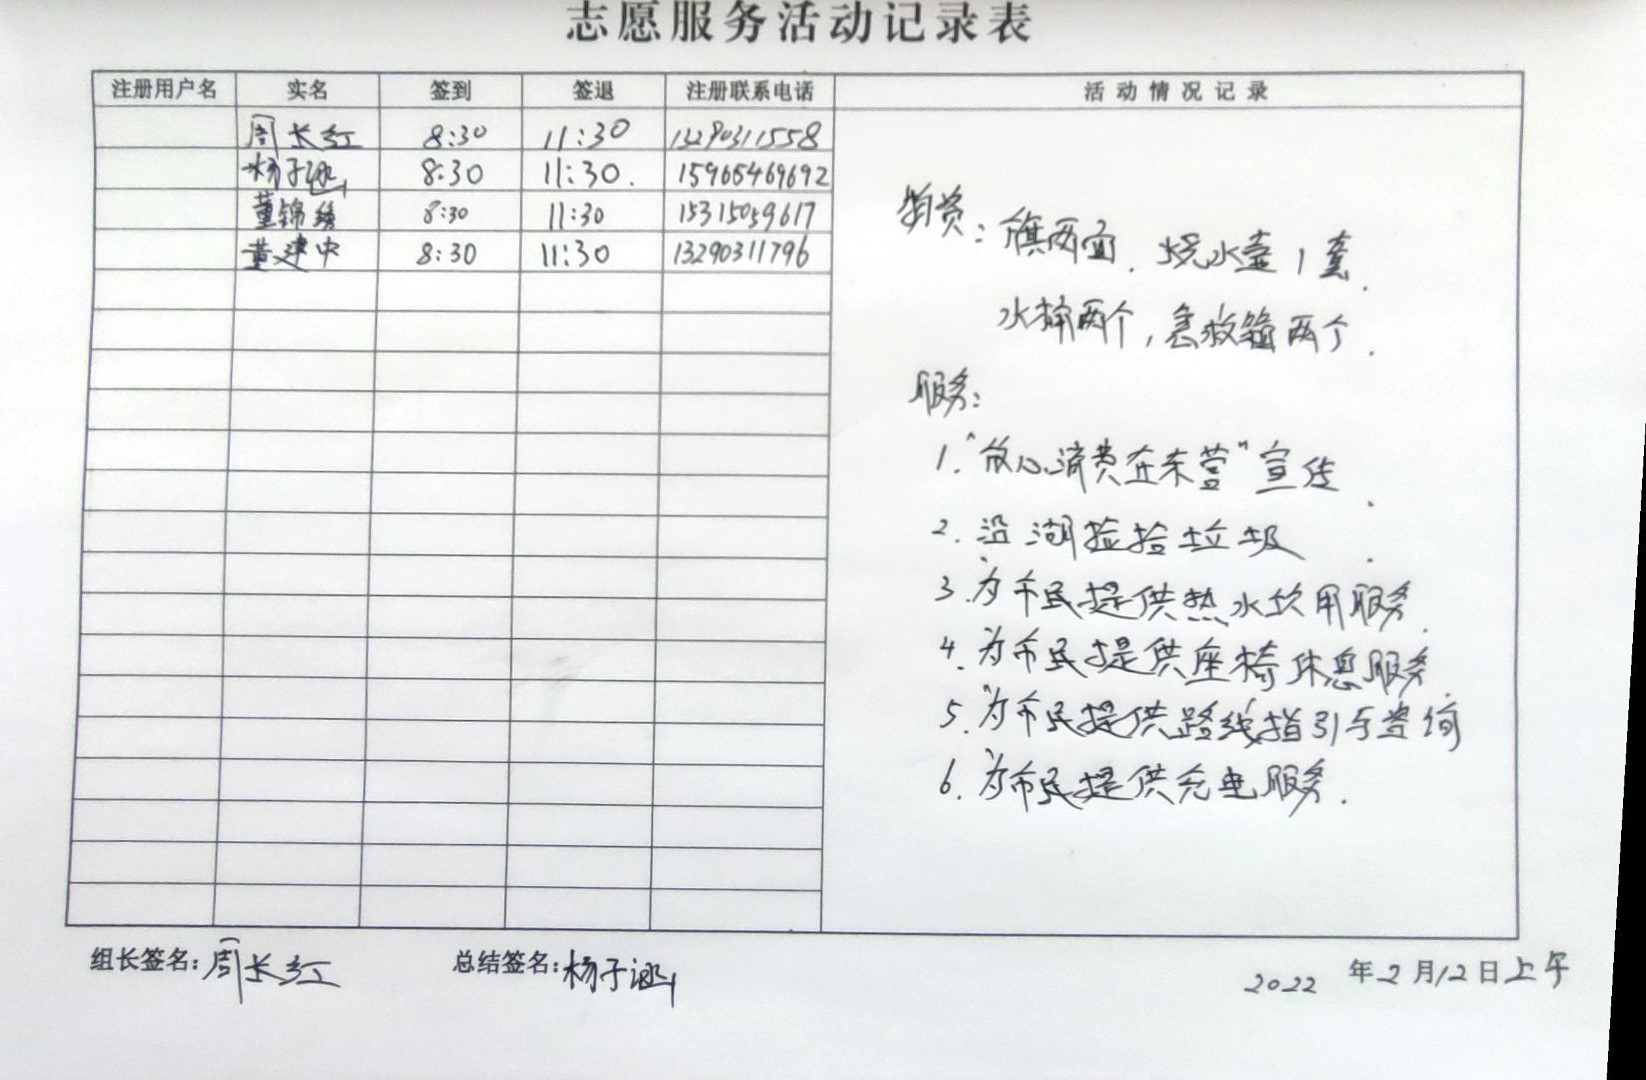 志愿服务活动记录表
注册用户名 实名 签到 签退 注册联系电话 活动情况记录
周长红 8:30 11:30 13290311558
杨子涵 8:30 11:30. 15965469692
董锦绣 8:30 11:30 15315059617
董建中 8:30 11:30 13290311796
物资：旗两面、烧水壶1套.
水桶两个，急救箱两个.
服务：
1.“放心消费在东营”宣传.
2.沿湖捡拾垃圾.
3.为市民提供热水饮用服务.
4.为市民提供座椅休息服务.
5.为市民提供路线指引与查询
6.为市民提供充电服务.
组长签名：周长红 总结签名：杨子涵 2022年2月12日上午